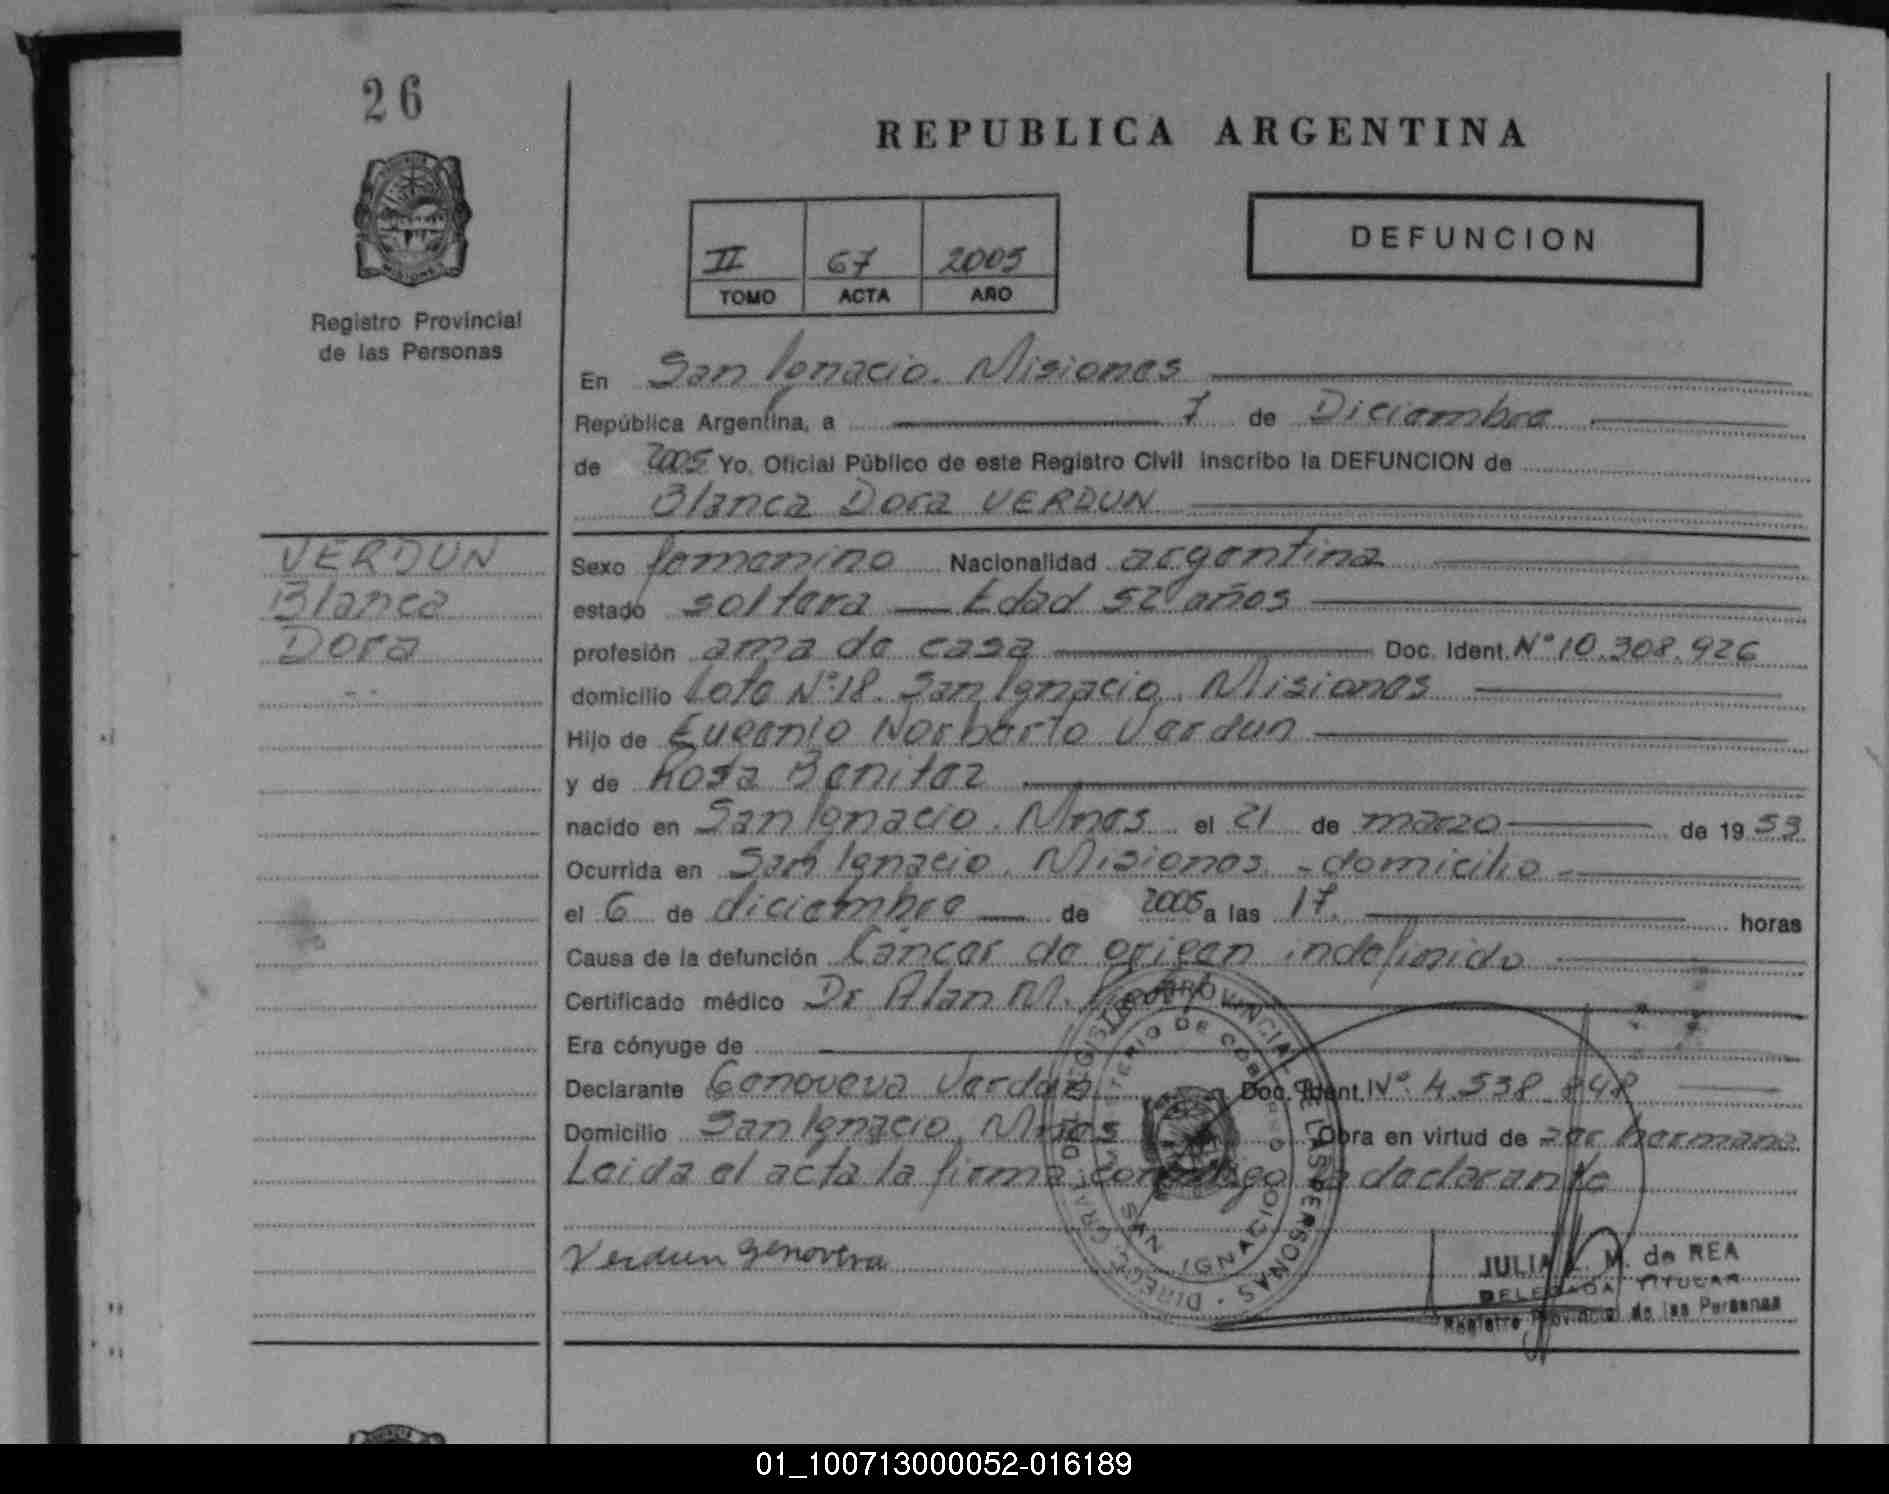 26
REPUBLICA ARGENTINA
DEFUNCION
II 67 2005
TOMO ACTA AÑO
Registro Provincial
de las Personas
En San Ignacio. Misiones
República Argentina, a 7 de Diciembre
de 2005 Yo, Oficial Público de este Registro Civil inscribo la DEFUNCION de
Blanca Dora VERDUN
VERDUN
Blanca
Dora
Sexo femenino Nacionalidad argentina
estado soltera Edad 52 años
profesión ama de casa Doc. Ident. Nº 10.308.926
domicilio Lote Nº 18. San Ignacio. Misiones
Hijo de Eugenio Norberto Verdun
y de Rosa Benitez
nacido en San Ignacio. Mnes el 21 de marzo de 1953
Ocurrida en San Ignacio. Misiones. - domicilio -
el 6 de diciembre de 2005 a las 17. horas
Causa de la defunción Cáncer de origen indefinido
Certificado médico Dr Alan M.
Era cónyuge de
Declarante Genoveva Verdun Doc. Ident. Nº. 4.538.848
Domicilio San Ignacio, Mnes Obra en virtud de ser hermana
Leida el acta la firma conmigo la declarante
Verdun Genoveva
JULIA L. M. de REA
DELEGADA TITULAR
Registro Provincial de las Personas
SAN IGNACIO
01_100713000052-016189